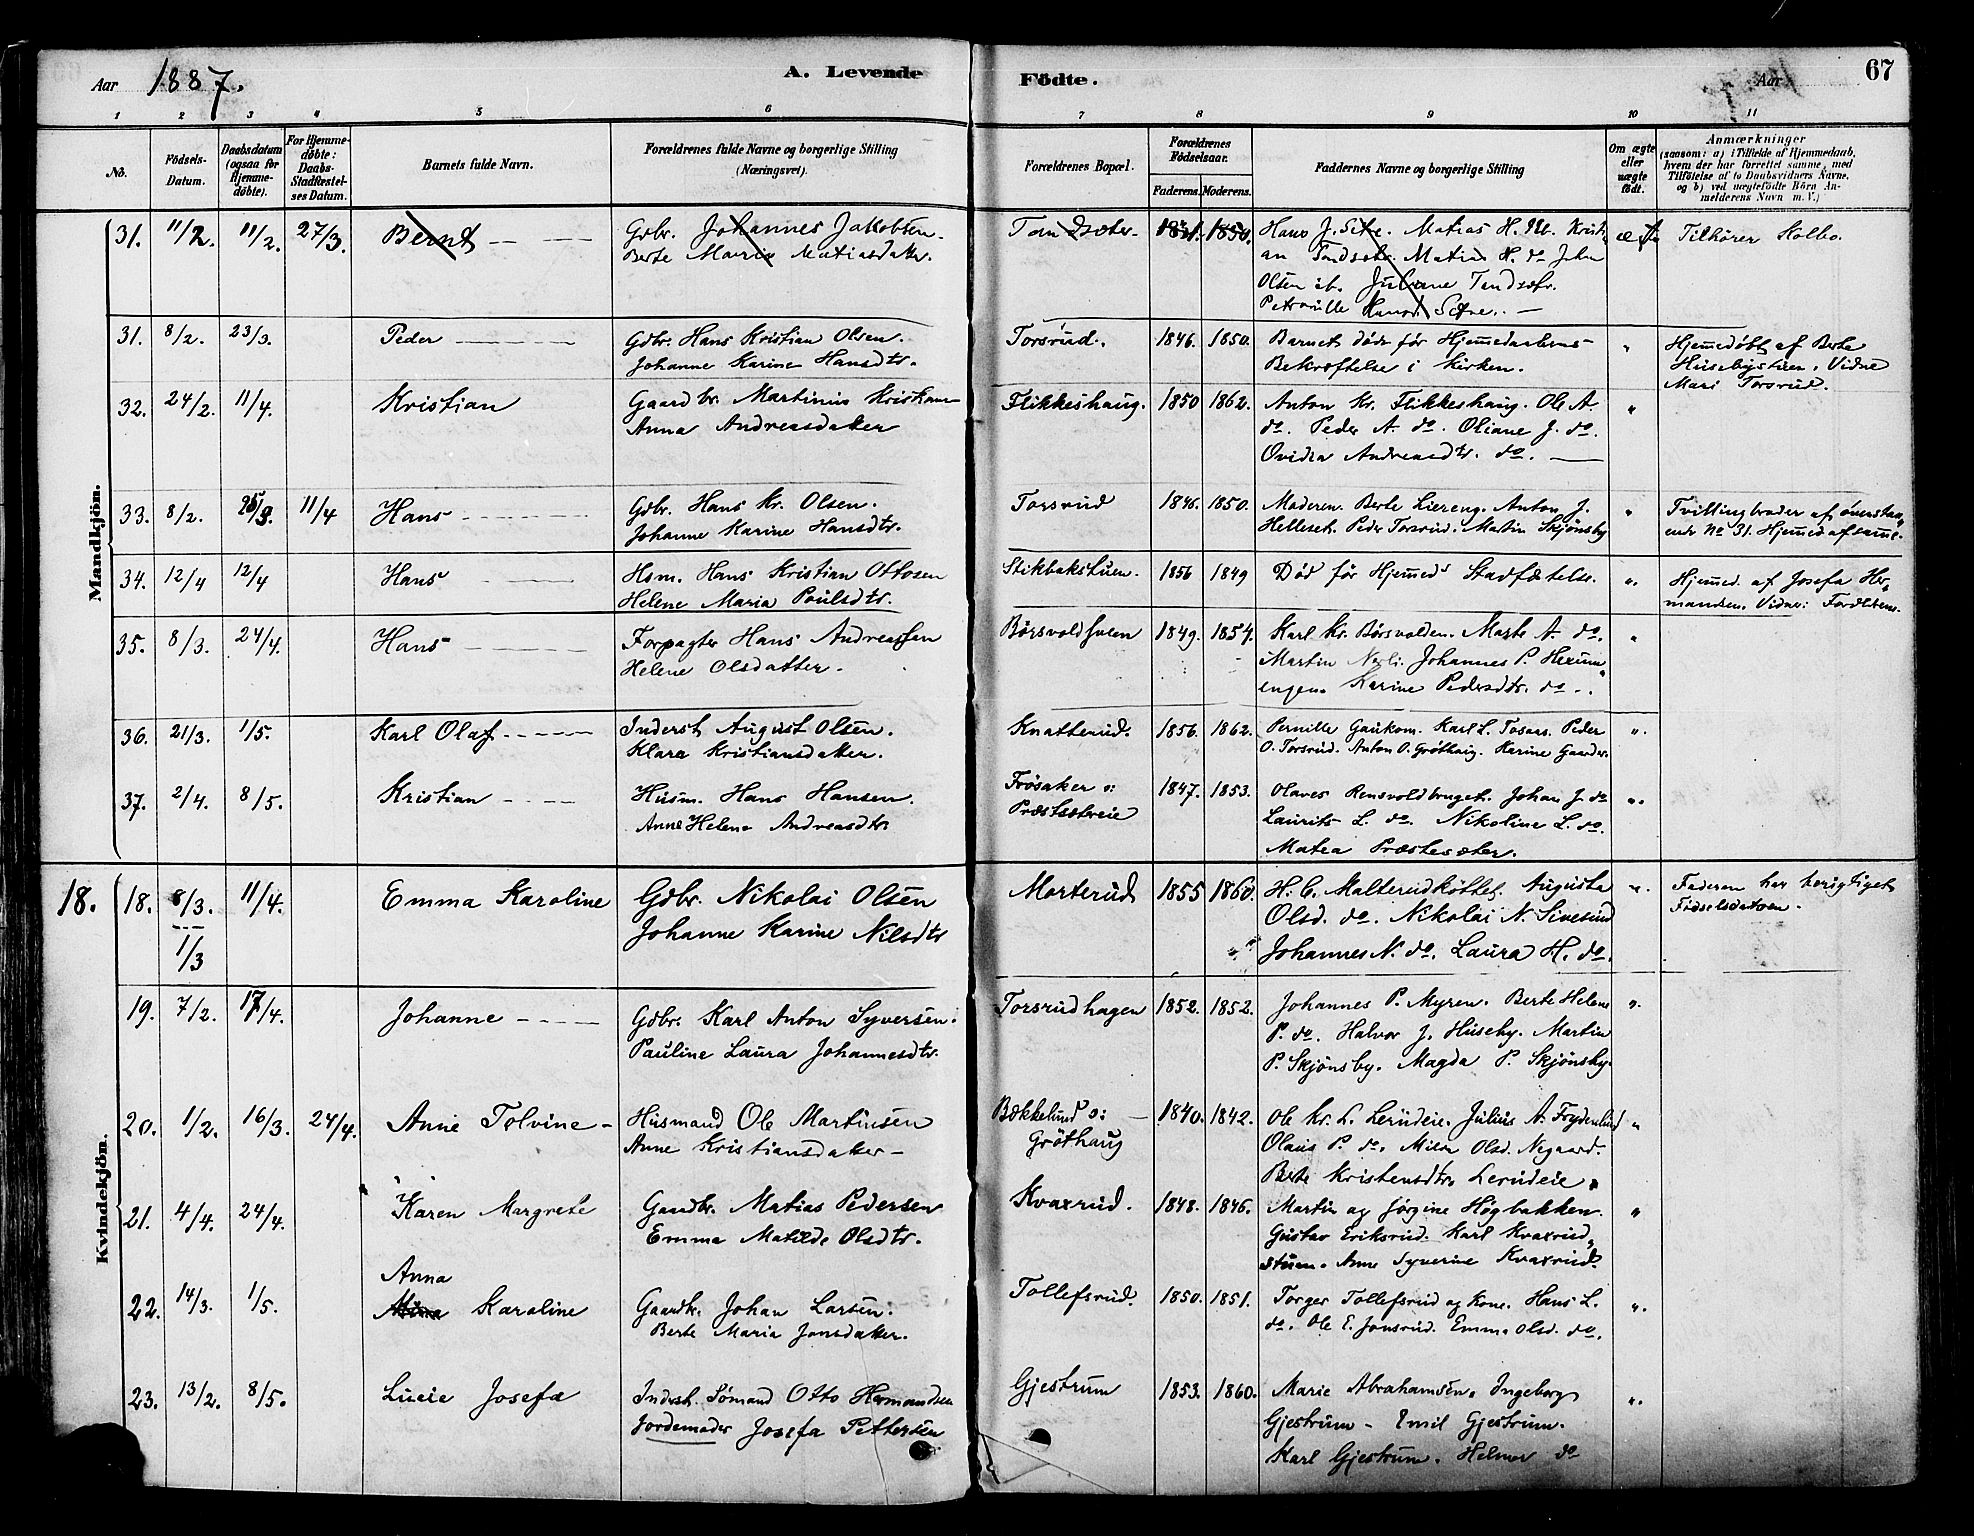 Aar 1887.
A. Levende Födte.
Aar
67
1 2 3 4 5 6 7 8 9 10 11
No.
Födsels-Datum.
Daabsdatum (ogsaa for Hjemme-döbte).
For Hjemme-döbte: Daabs-Stadfæstel-ses Datum.
Barnets fulde Navn.
Forældrenes fulde Navne og borgerlige Stilling (Næringsvei).
Forældrenes Bopæl.
Forældrenes Födselsaar.
Faderens. Moderens.
Faddernes Navne og borgerlige Stilling
Om ægte eller uægte födt.
Anmærkninger
(saasom: a) i Tilfælde af Hjemmedaab,
hvem der har forrettet samme, med
Tilföielse af to Daabsvidners Navne,
og b) ved uægtefödte Börn An-
melderens Navn m. V.)
Mandkjön.
31. 11/2. 11/2. 27/3. Bernt Gdbr. Johannes Jakobsen 1850. Hans J. Matias H. Kristi
Berte Marie Matiasdatter. an Matias H. do John
Olsen Juliane
Petronille
ægte Tilhører Kolbo.
31. 8/2. 23/3. Peder Gdbr. Hans Kristian Olsen. Torsrud. 1846. 1850. Barnet døde før Hjemmedaabens " Hjemmedøbt af Berte
Johanne Karine Hansdtr. Bekræftelse i Kirken. Husebystuen. Vidne
Mari Torsrud.
32. 24/2. 11/4. Kristian Gaardbr. Martinus Flikkeshaug. 1850 1862. Anton Kr. Flikkeshaug. Ole A. "
Anna Andreasdatter do. Peder A. do. Oliane J. do.
Andreasdtr. do.
33. 8/2. 11/4 Hans Gdbr. Hans Kr. Olsen. Torsrud 1846. 1850. Moderen. Berte Liereng. Anton J. " Tvillingbroder af ovenstaa-
Johanne Karine Hansdtr. Helleset. Peder Torsrud. Martin Skjønsby ende No 31. Hjemmed. af samme.
34. 12/4 12/4 Hans Hsm. Hans Kristian Ottosen Stikbakstuen. 1856 1849 Død før Hjemmeds Stadfæstelse. " Hjemmed. af Josefa Her-
Helene Maria Paulsdtr. mandsen. Vidne:
35. 8/3. 24/4. Hans Forpagter Hans Andreassen 1849. 1854. Karl Kr. Børsvolden. Marte A. do. "
Helene Olsdatter. Martin Johannes P. Hexum-
engen. Karine Pedersdtr. do.
36. 21/3. 1/5. Karl Olaf Inderst August Olsen. Knatterud. 1856. 1862. Pernille Gaukom. Karl L. Peder "
Klara Kristiansdatter. O. Torsrud. Anton O. Grøthaug. Karine Gaarder.
37. 2/4. 8/5. Kristian Husm. Hans Hansen. Frøsaker o: 1847. 1853. Olaves Rensvoldbruget. Johan J. do "
Anne Helene Andreasdtr Præstsætereie Laurits L. do. Nikoline L. do.
Matea Præstesæter.
Kvindekjön.
18. 18. 8/3. 1/3 11/4. Emma Karoline Gdbr. Nikolai Olsen Morterud 1855 1860. H. C. Augusta " Faderen har berigtiget
Johanne Karine Nilsdtr Olsd. do. Nikolai N. Sivesind Fødselsdatoen.
Johannes N. do. Laura H. do.
19. 7/2. 17/4. Johanne Gdbr. Karl Anton Syversen. Torsrudhagen 1852. 1852. Johannes P. Myren. Berte Helene "
Pauline Laura Johannesdtr. P. do. Halvor J. Huseby. Martin
P. Skjønsby. Magda P. Skjønsby
20. 1/2. 16/3. 24/4. Anne Tolvine Husmand Ole Martinsen Bækkelund o: 1840. 1842. Ole Kr. L. Lerudeie. Julius A. Frydenlund "
Anne Kristiansdatter Grøthaug Olaus P. do. Milen Olsd. Negaard.
Berte Kristensdtr. Lerudeie
21. 4/4. 24/4. Karen Margrete Gaardbr. Matias Pedersen Kvaxrud. 1848. 1846. Martin og Jørgine Høgbakken. "
Emma Matilde Olsdtr. Gustav Eriksrud. Karl Kvaxrud-
stuen. Anne Syverine Kvaxrud.
22. 14/3. 1/5. Anna Karoline Gaardb. Johan Larsen. Tollefsrud. 1850. 1851. Torger Tollefsrud og Kone. Hans L. "
Berte Maria Jonsdatter. do. Ole E. Jonsrud. Emma Olsd. do.
23. 13/2. 8/5. Lucie Josefa Inderst. Sømand Otto Hermandsen Gjestrum 1853. 1860. Marie Abrahamsen. Ingeborg "
Jordemoder Josefa Pettersen Gjestrum - Emil Gjestrum.
Karl Gjestrum. Helmer do